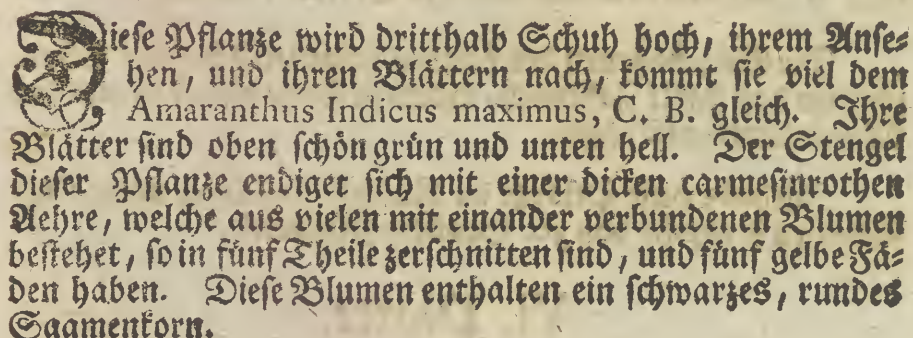 Diese Pflanze wird dritthalb Schuh hoch, ihrem Anse-
hen, und ihren Blättern nach, kommt sie viel dem
Amaranthus Indicus maximus, C. B. gleich. Ihre
Blätter sind oben schön grün und unten hell. Der Stengel
dieser Pflanze endiget sich mit einer dicken carmesinrothen
Aehre, welche aus vielen mit einander verbundenen Blumen
bestehet, so in fünf Theile zerschnitten sind, und fünf gelbe Fä-
den haben. Diese Blumen enthalten ein schwarzes, rundes
Saamenkorn.